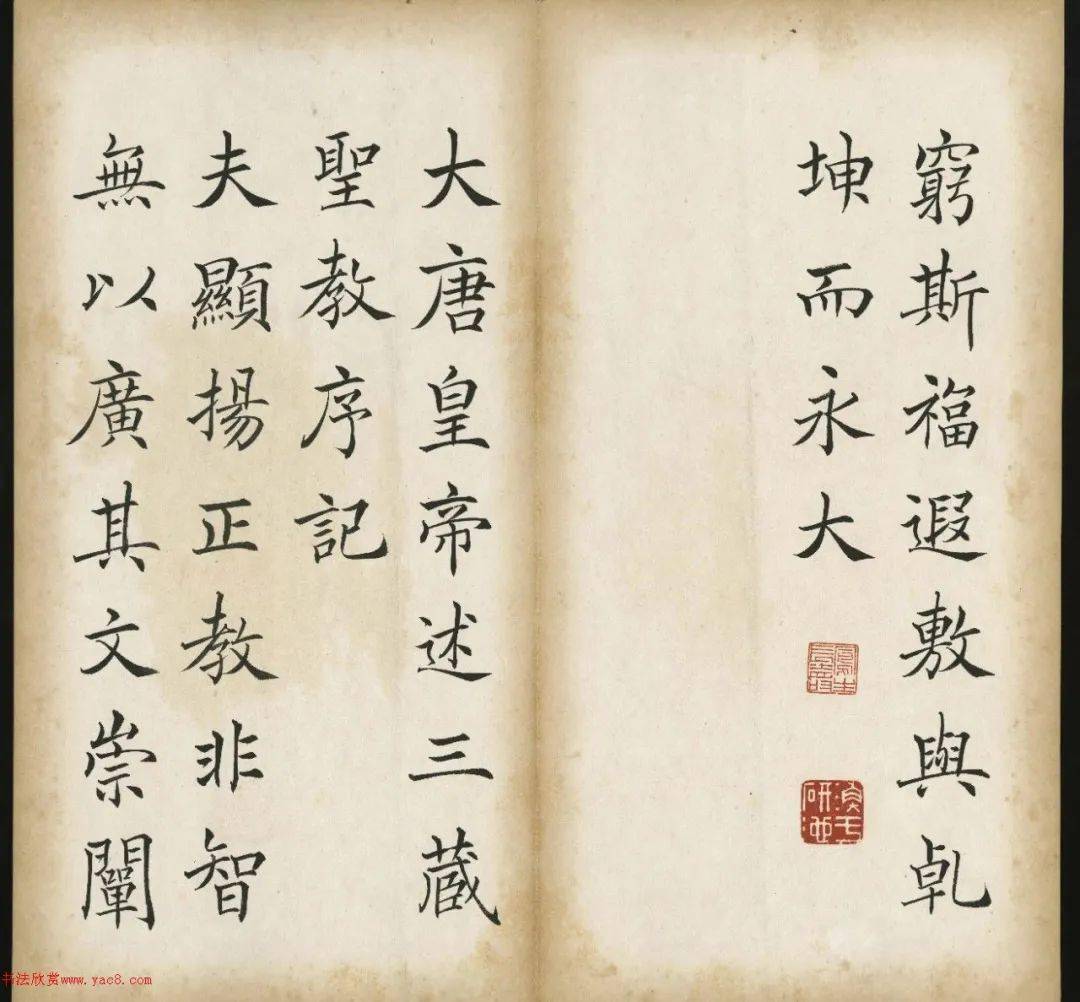 窮斯福遐敷與乹
坤而永大
大唐皇帝述三蔵
聖教序記
夫顯揚正教非智
無以廣其文崇闡
书法欣赏www.yac8.com